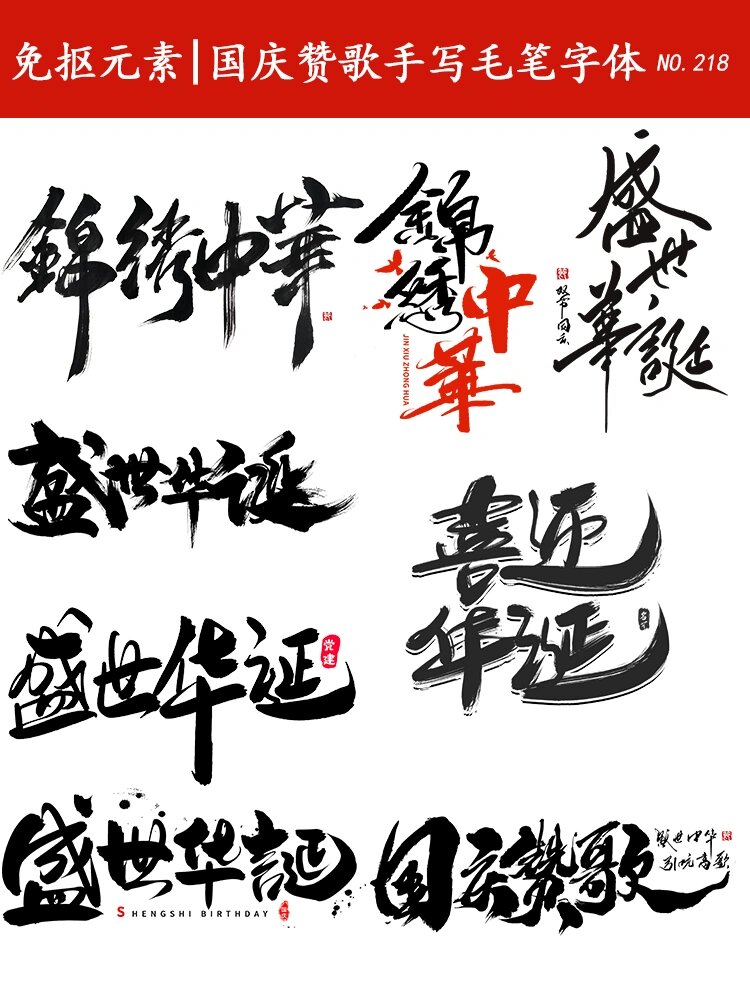 免抠元素|国庆赞歌手写毛笔字体 NO. 218
錦绣中華
錦繡
中華
JIN XIU ZHONG HUA
盛世
華誕
双节同庆
盛世华诞
喜迎
华诞
盛世华诞
党建
盛世华誕
SHENGSHI BIRTHDAY
国庆
国庆赞歌
盛世中华
引吭高歌